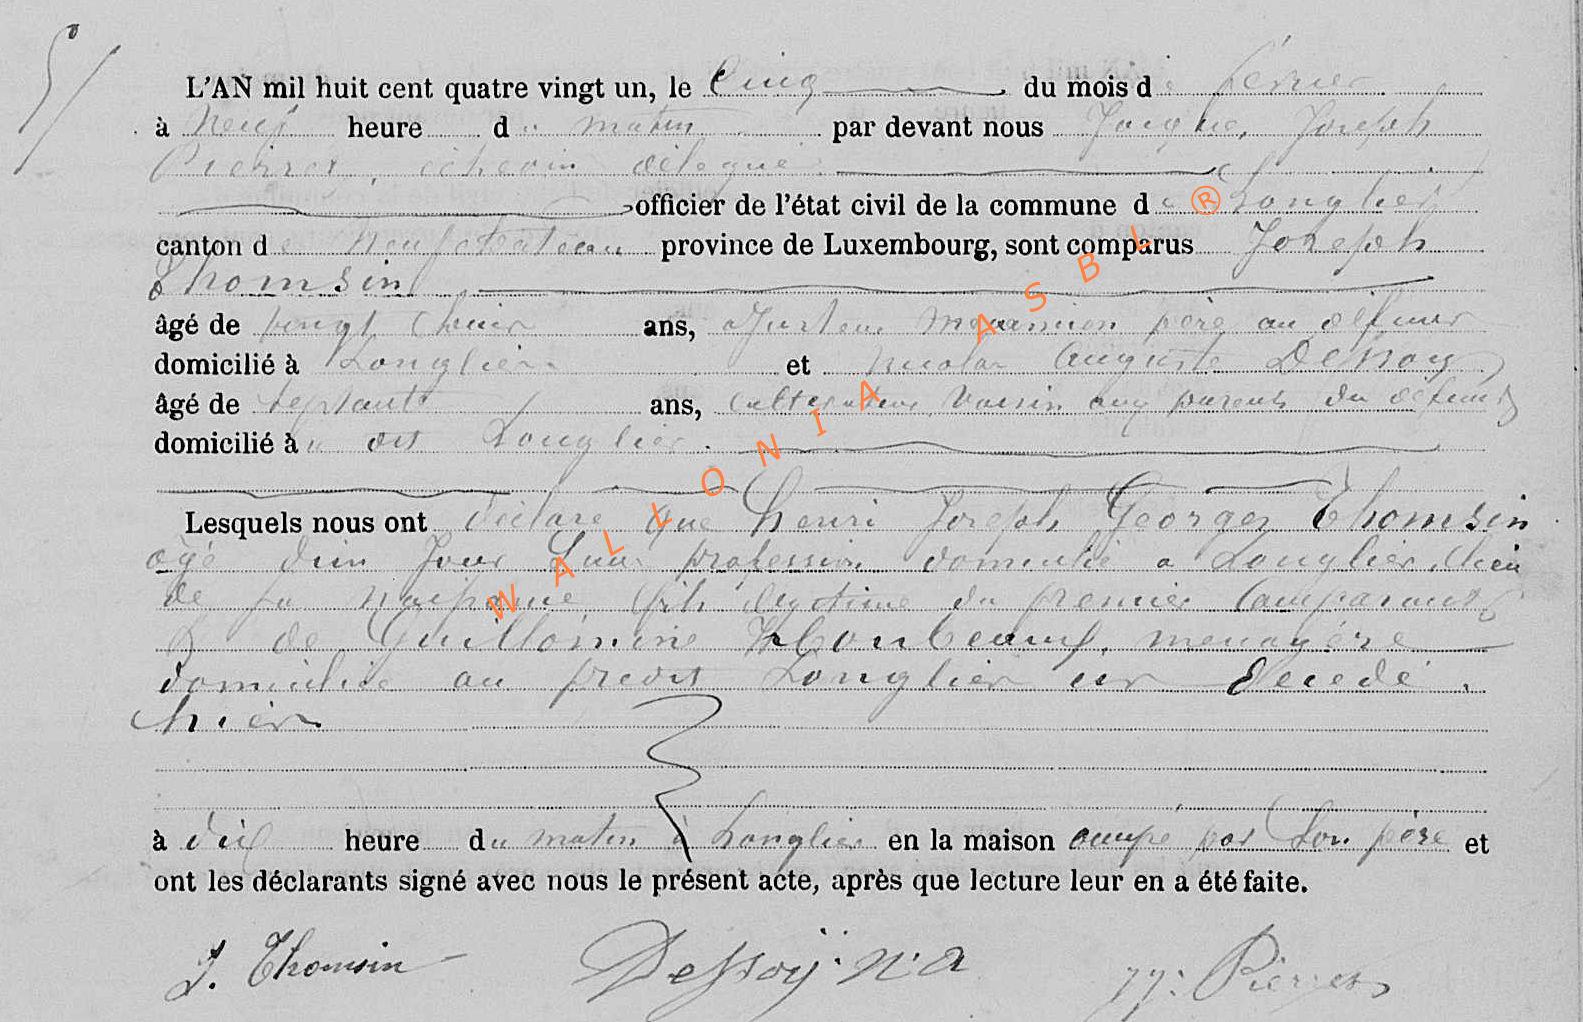 5/
L'AN mil huit cent quatre vingt un, le Cinq du mois de février
à Neuf heure du matin par devant nous Jacques Joseph
Pierret, échevin délégué
officier de l'état civil de la commune de Longlier
canton de Neufchateau province de Luxembourg, sont comparus Joseph
Thomsin
âgé de vingt ans, père au défunt
domicilié à Longlier et Nicolas Auguste Dessoy
âgé de septante ans, cultivateur voisin aux parents du défunt
domicilié à u dit Longlier.
Lesquels nous ont déclaré que Henri Joseph Georges Thomsin
agé d'un Jour Sans profession domicilié a Longlier, lieu
de sa naissance fils légitime du premier Comparant
& de menagère
domicilié au predit Longlier est Decedé
hier
à dix heure du matin à Longlier en la maison occupé par Son père et
ont les déclarants signé avec nous le présent acte, après que lecture leur en a été faite.
J. Thomsin Dessoÿ. N. A JJ: Pierret
® WALLONIA ASBL